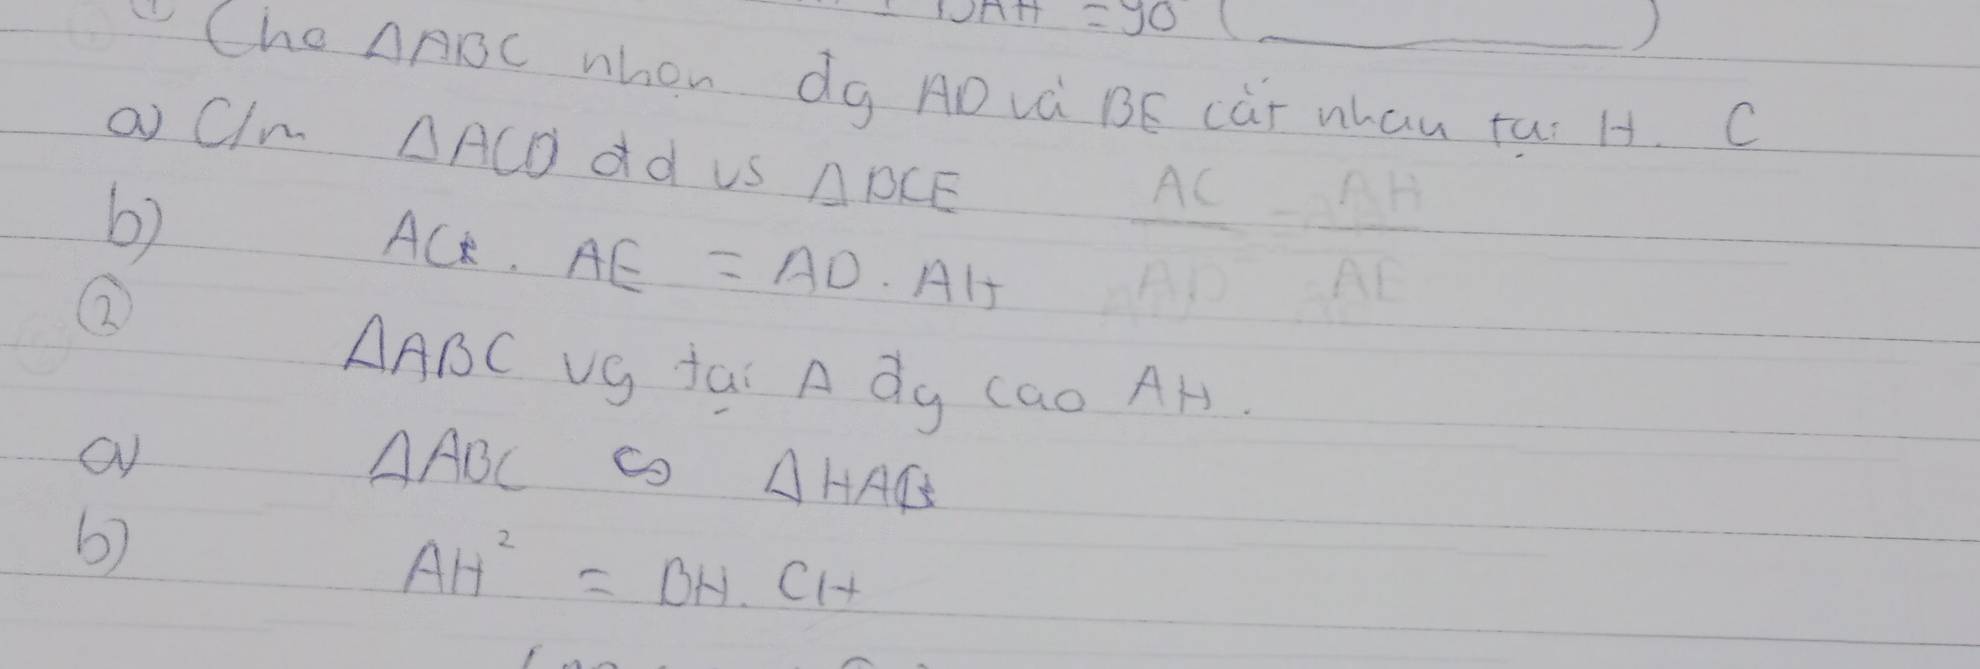 AH = 90 ( )
① Cho ΔABC nhọn đg AD và BE cắt nhau tại H. C
a) C/m ΔACD đd vs ΔBCE
b) AC . AE = AD . AH
②
ΔABC vg tại A đg cao AH.
a) ΔABC ∽ ΔHAB
b) AH² = BH. CH